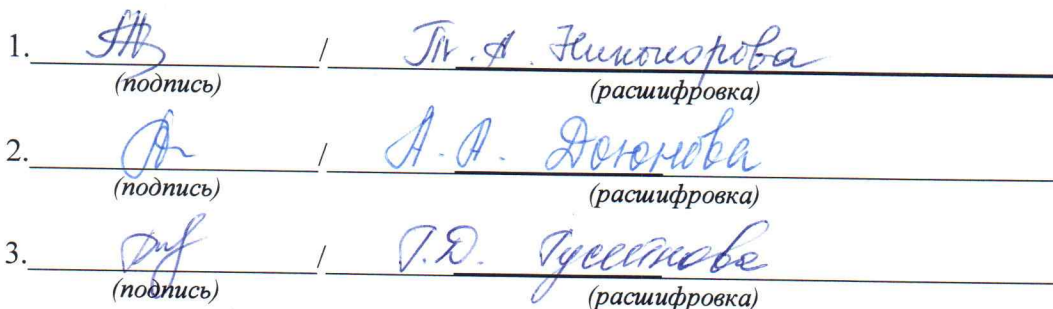 1. / Т. А. Никонорова
(подпись) (расшифровка)
2. / А. А. Доюнова
(подпись) (расшифровка)
3. / Г. Д. Гусейнова
(подпись) (расшифровка)